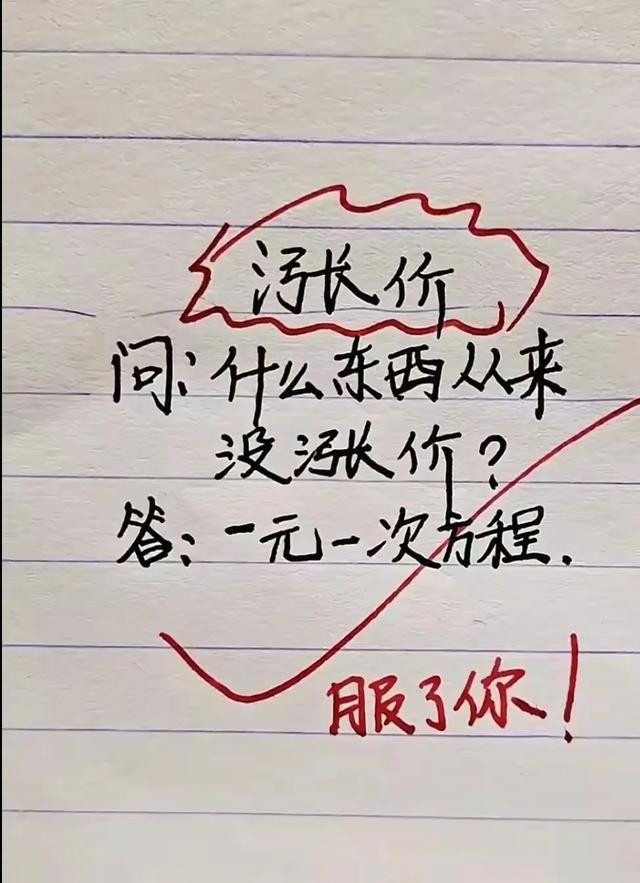 涨价
问：什么东西从来
没涨价？
答：一元一次方程.
服了你！